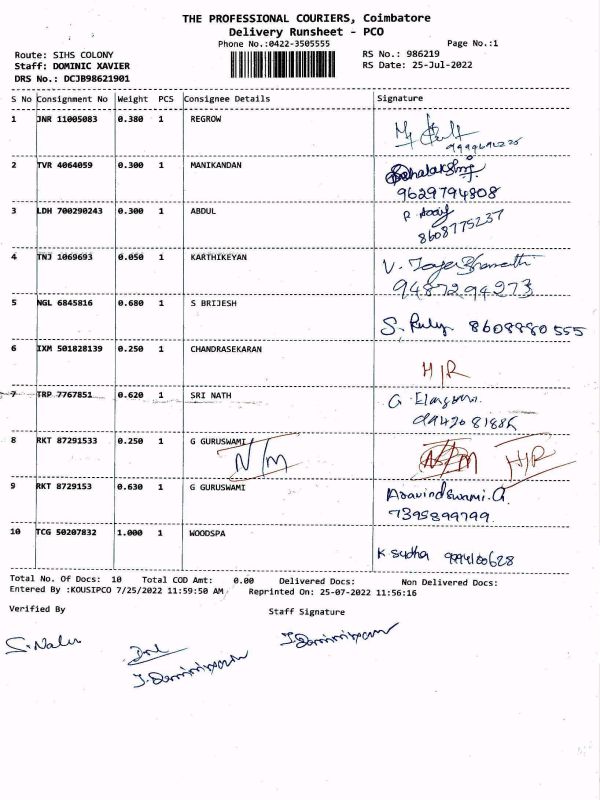 THE PROFESSIONAL COURIERS, Coimbatore
Delivery Runsheet - PCO
Phone No.:0422-3505555
Page No.:1
Route: SIHS COLONY
RS No.: 986219
Staff: DOMINIC XAVIER
RS Date: 25-Jul-2022
DRS No.: DCJB98621901
S No Consignment No Weight PCS Consignee Details Signature
1 JNR 11005083 0.380 1 REGROW
2 TVR 4064059 0.300 1 MANIKANDAN
9629794808
3 LDH 700290243 0.300 1 ABDUL
8608775237
4 TNJ 1069693 0.050 1 KARTHIKEYAN
9487294273
5 NGL 6845816 0.680 1 S BRIJESH
8608880555
6 IXM 501828139 0.250 1 CHANDRASEKARAN
H/R
7 TRP 7767851 0.620 1 SRI NATH
8 RKT 87291533 0.250 1 G GURUSWAMI
N/M H/R
9 RKT 8729153 0.630 1 G GURUSWAMI Aravindswami.G
7395899799
10 TCG 50207832 1.000 1 WOODSPA
K sudha
Total No. Of Docs: 10 Total COD Amt: 0.00 Delivered Docs: Non Delivered Docs:
Entered By :KOUSIPCO 7/25/2022 11:59:50 AM Reprinted On: 25-07-2022 11:56:16
Verified By Staff Signature